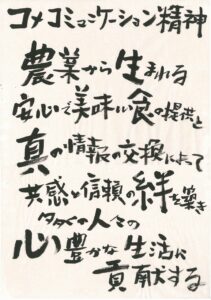 コメコミュニケーション精神
農業から生まれる
安心で美味しい食の提供と
真の情報の交換によって
共感と信頼の絆を築き
多くの人々の
心豊かな生活に
貢献する